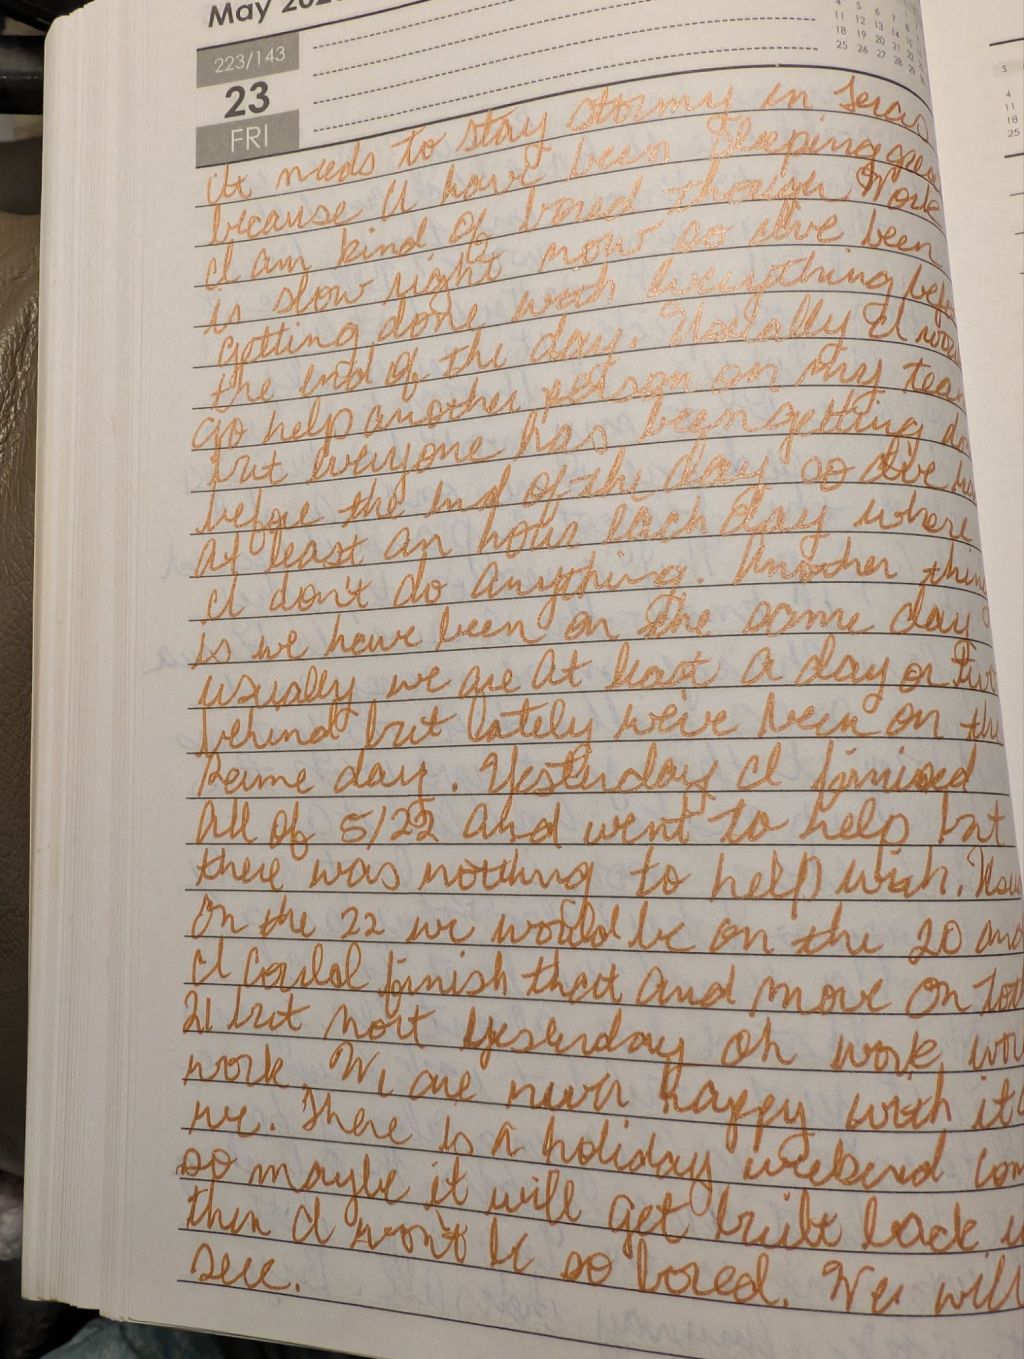 May
223/143
23
FRI
It needs to stay stormy in
because I have been sleeping
I am kind of bored though. Work
is slow right now so I've been
getting done with everything
the end of the day. Usually I
go help another person on my
but everyone has been getting
before the end of the day so I've
at least an hour each day where
I don't do anything. Another
is we have been on the same day
usually we are at least a day or
behind but lately we've been on
same day. Yesterday I finised
all of 5/22 and went to help but
there was nothing to help with.
on the 22 we would be on the 20 and
I could finish that and move on
21 but not yesterday oh work
work. We are never happy with it
we. There is a holiday weekend
so maybe it will get built back
then I won't be so bored. We will
see.